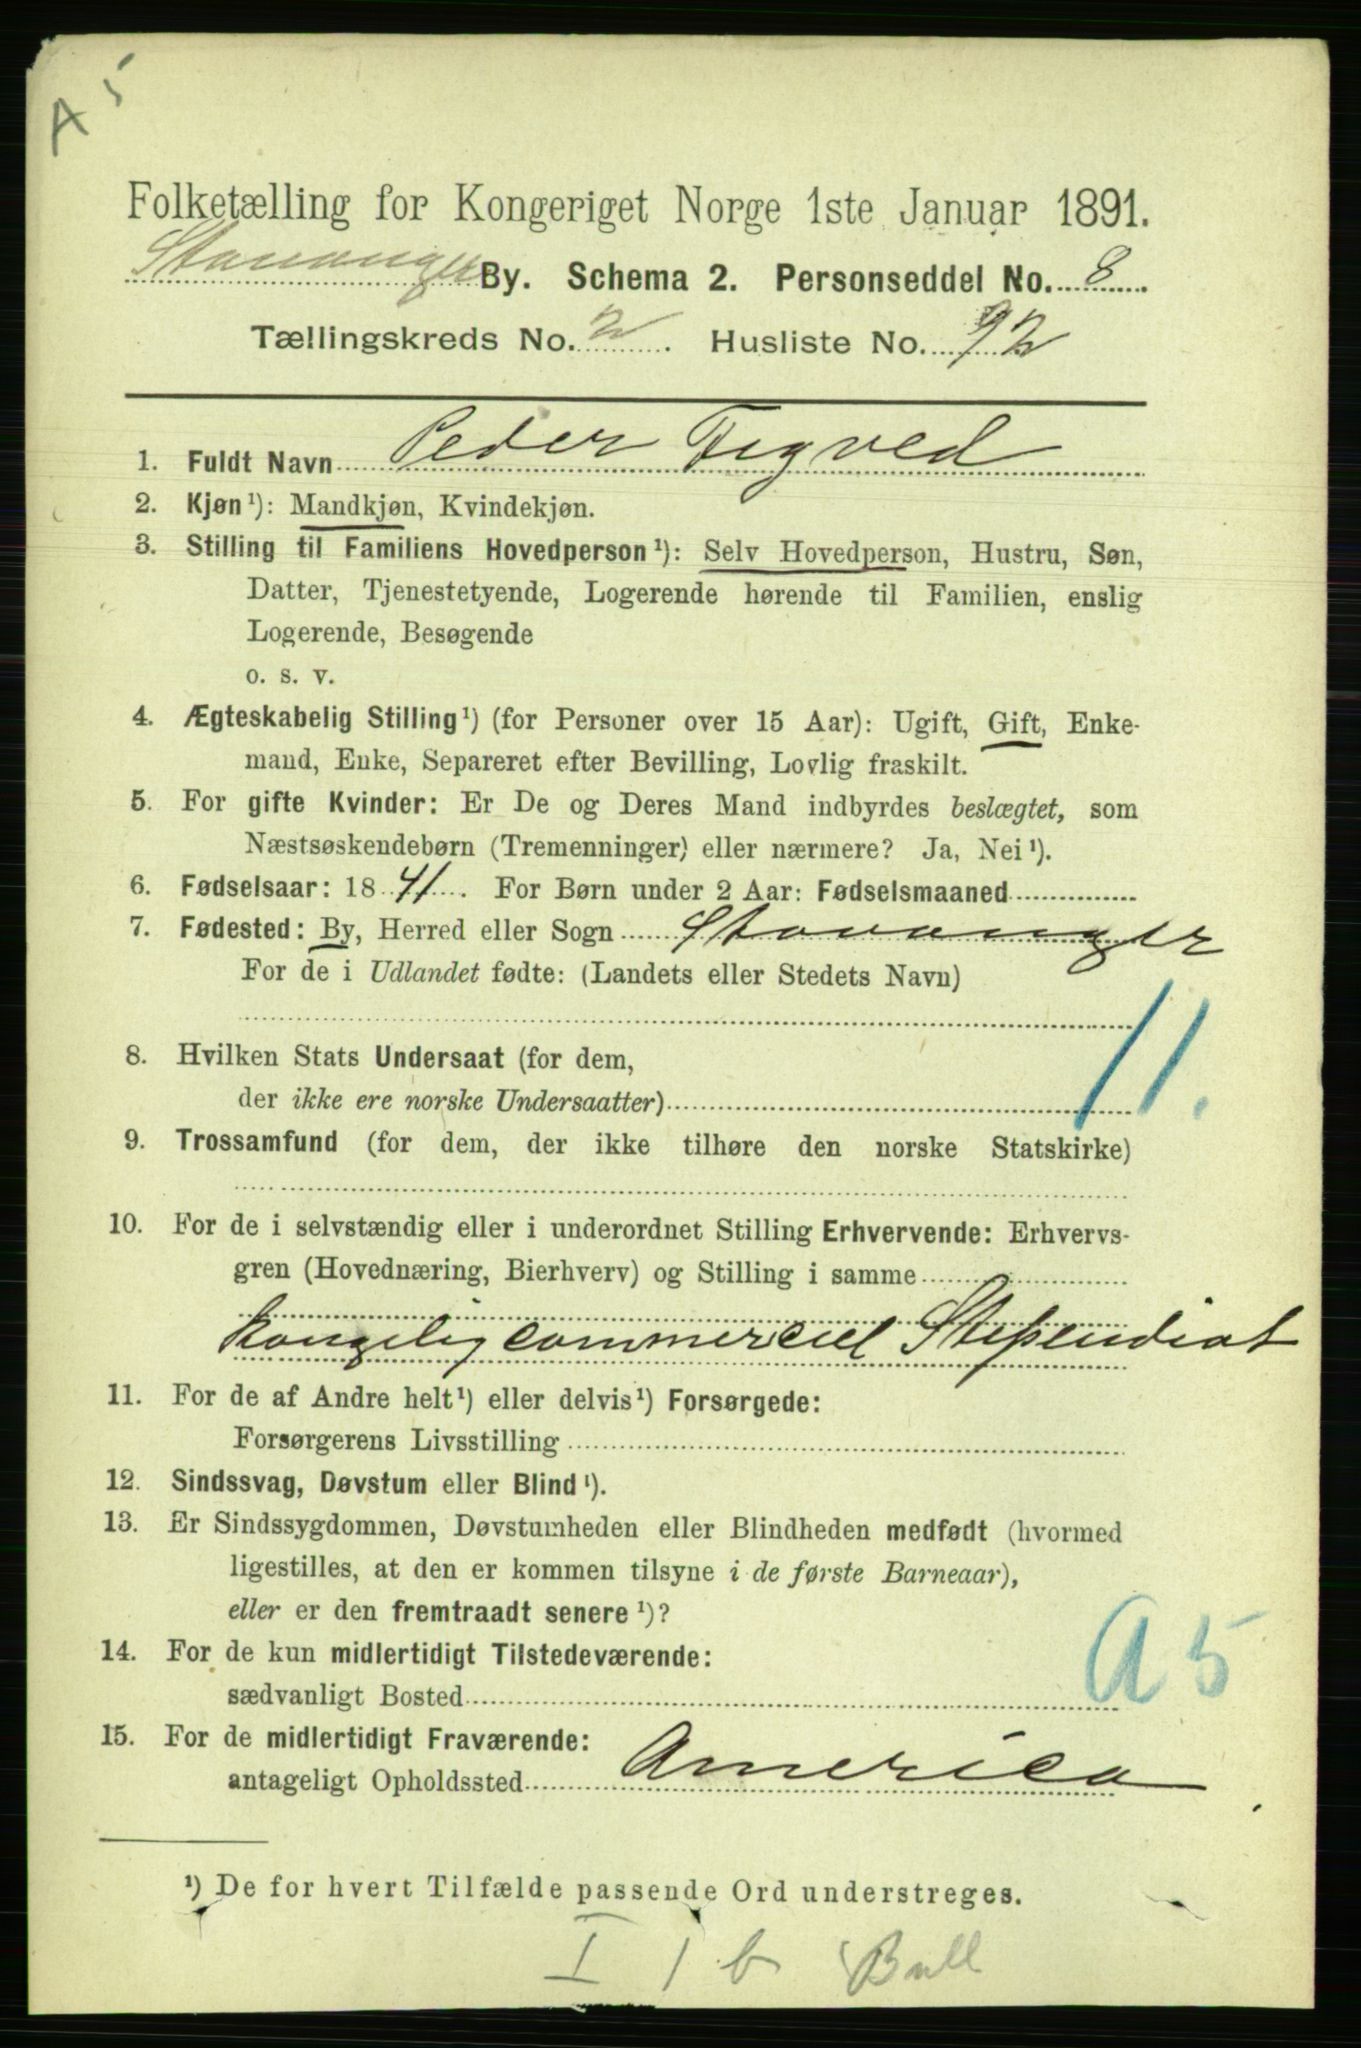 A 5
Folketælling for Kongeriget Norge 1ste Januar 1891.
Stavanger By. Schema 2. Personseddel No. 8
Tællingskreds No. 2. Husliste No. 92
1. Fuldt Navn Peder Tegved
2. Kjøn¹): Mandkjøn, Kvindekjøn.
3. Stilling til Familiens Hovedperson¹): Selv Hovedperson, Hustru, Søn,
Datter, Tjenestetyende, Logerende hørende til Familien, enslig
Logerende, Besøgende
o. s. v.
4. Ægteskabelig Stilling¹) (for Personer over 15 Aar): Ugift, Gift, Enke-
mand, Enke, Separeret efter Bevilling, Lovlig fraskilt.
5. For gifte Kvinder: Er De og Deres Mand indbyrdes beslægtet, som
Næstsøskendebørn (Tremenninger) eller nærmere? Ja, Nei¹).
6. Fødselsaar: 1841. For Børn under 2 Aar: Fødselsmaaned
7. Fødested: By, Herred eller Sogn Stavanger
For de i Udlandet fødte: (Landets eller Stedets Navn)
11.
8. Hvilken Stats Undersaat (for dem,
der ikke ere norske Undersaatter)
9. Trossamfund (for dem, der ikke tilhøre den norske Statskirke)
10. For de i selvstændig eller i underordnet Stilling Erhvervende: Erhvervs-
gren (Hovednæring, Bierhverv) og Stilling i samme
kongelig commerciel Stipendiat
11. For de af Andre helt¹) eller delvis¹) Forsørgede:
Forsørgerens Livsstilling
12. Sindssvag, Døvstum eller Blind¹).
13. Er Sindssygdommen, Døvstumheden eller Blindheden medfødt (hvormed
ligestilles, at den er kommen tilsyne i de første Barneaar),
eller er den fremtraadt senere¹)?
14. For de kun midlertidigt Tilstedeværende:
sædvanligt Bosted
A 5
15. For de midlertidigt Fraværende:
antageligt Opholdssted America
¹) De for hvert Tilfælde passende Ord understreges.
I 1 b Bull